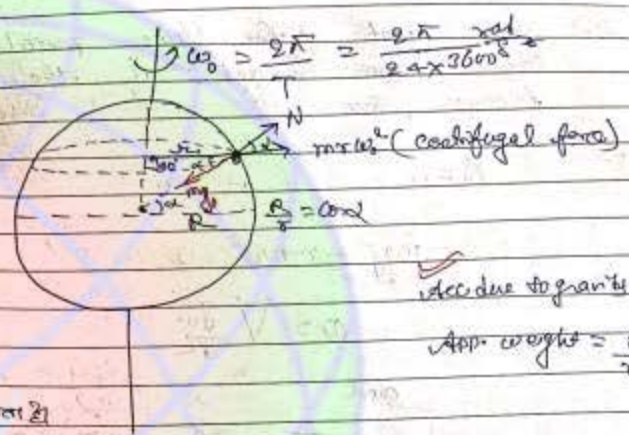 ω₀ = 2π/T = 2π/24×3600 rad/s
N
mrω₀² (centrifugal force)
r
90°
α
mg
α
R
R/r = cosα
Acc due to gravity
App. weight =